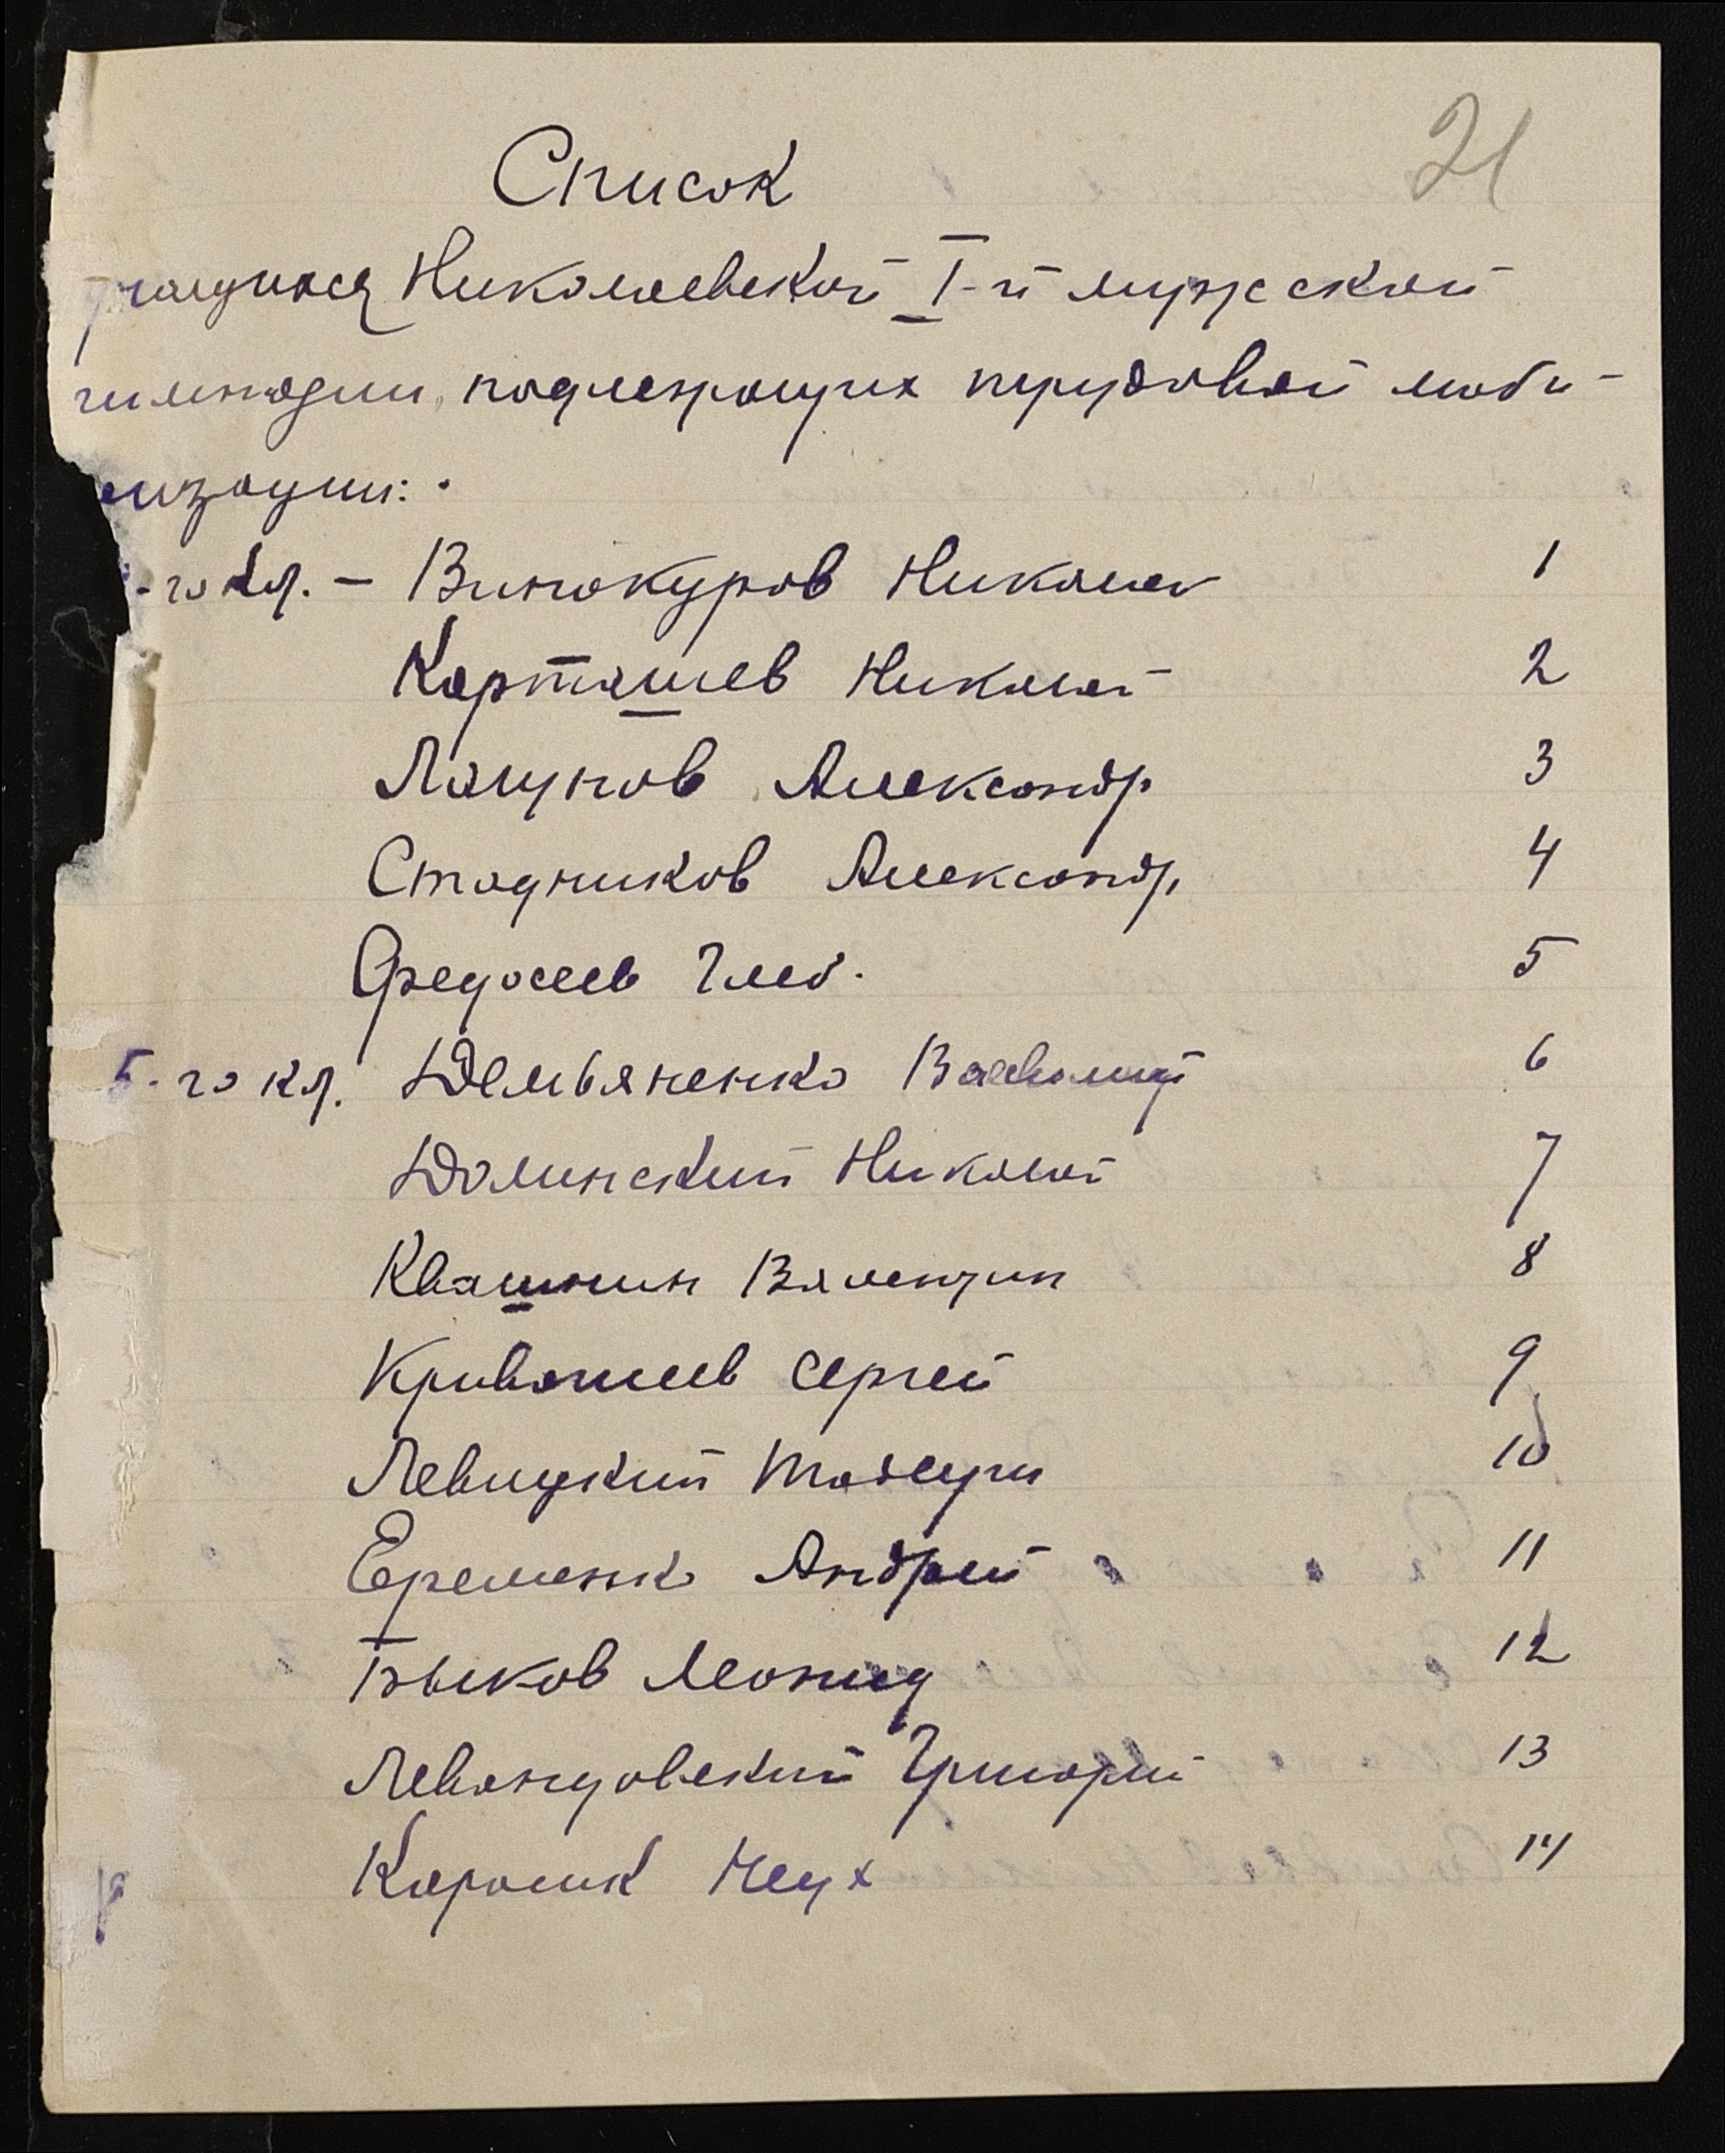 21
Список
учащихся Николаевской I-й мужской
гимназии, подлежащих трудовой моби-
лизации:
-го кл. – Винокуров Николай 1
Карташев Николай 2
Лагунов Александр 3
Стадников Александр 4
Федосеев Глеб. 5
5-го кл. Демьяненко Всеволод 6
Долинский Николай 7
Квашнин Валентин 8
Кривошеев Сергей 9
Левицкий 10
Еременко Андрей 11
Быков Леонид 12
Левандовский Григорий 13
Каролик 14